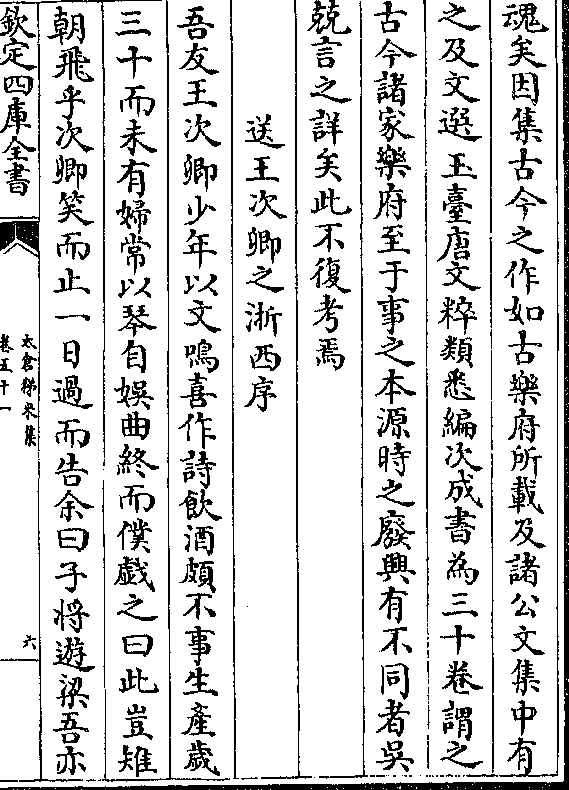 魂矣因集古今之作如古樂府所載及諸公文集中有
之及文選玉臺唐文粹類悉編次成書為三十卷謂之
古今諸家樂府至于事之本源時之廢興有不同者吳
兢言之詳矣此不復考焉
送王次卿之浙西序
吾友王次卿少年以文鳴喜作詩飲酒頗不事生產歲
三十而未有婦常以琴自娛曲終而僕戲之曰此豈雉
朝飛乎次卿笑而止一日過而告余曰子將遊梁吾亦
欽定四庫全書
太倉稊米集
卷五十一
六